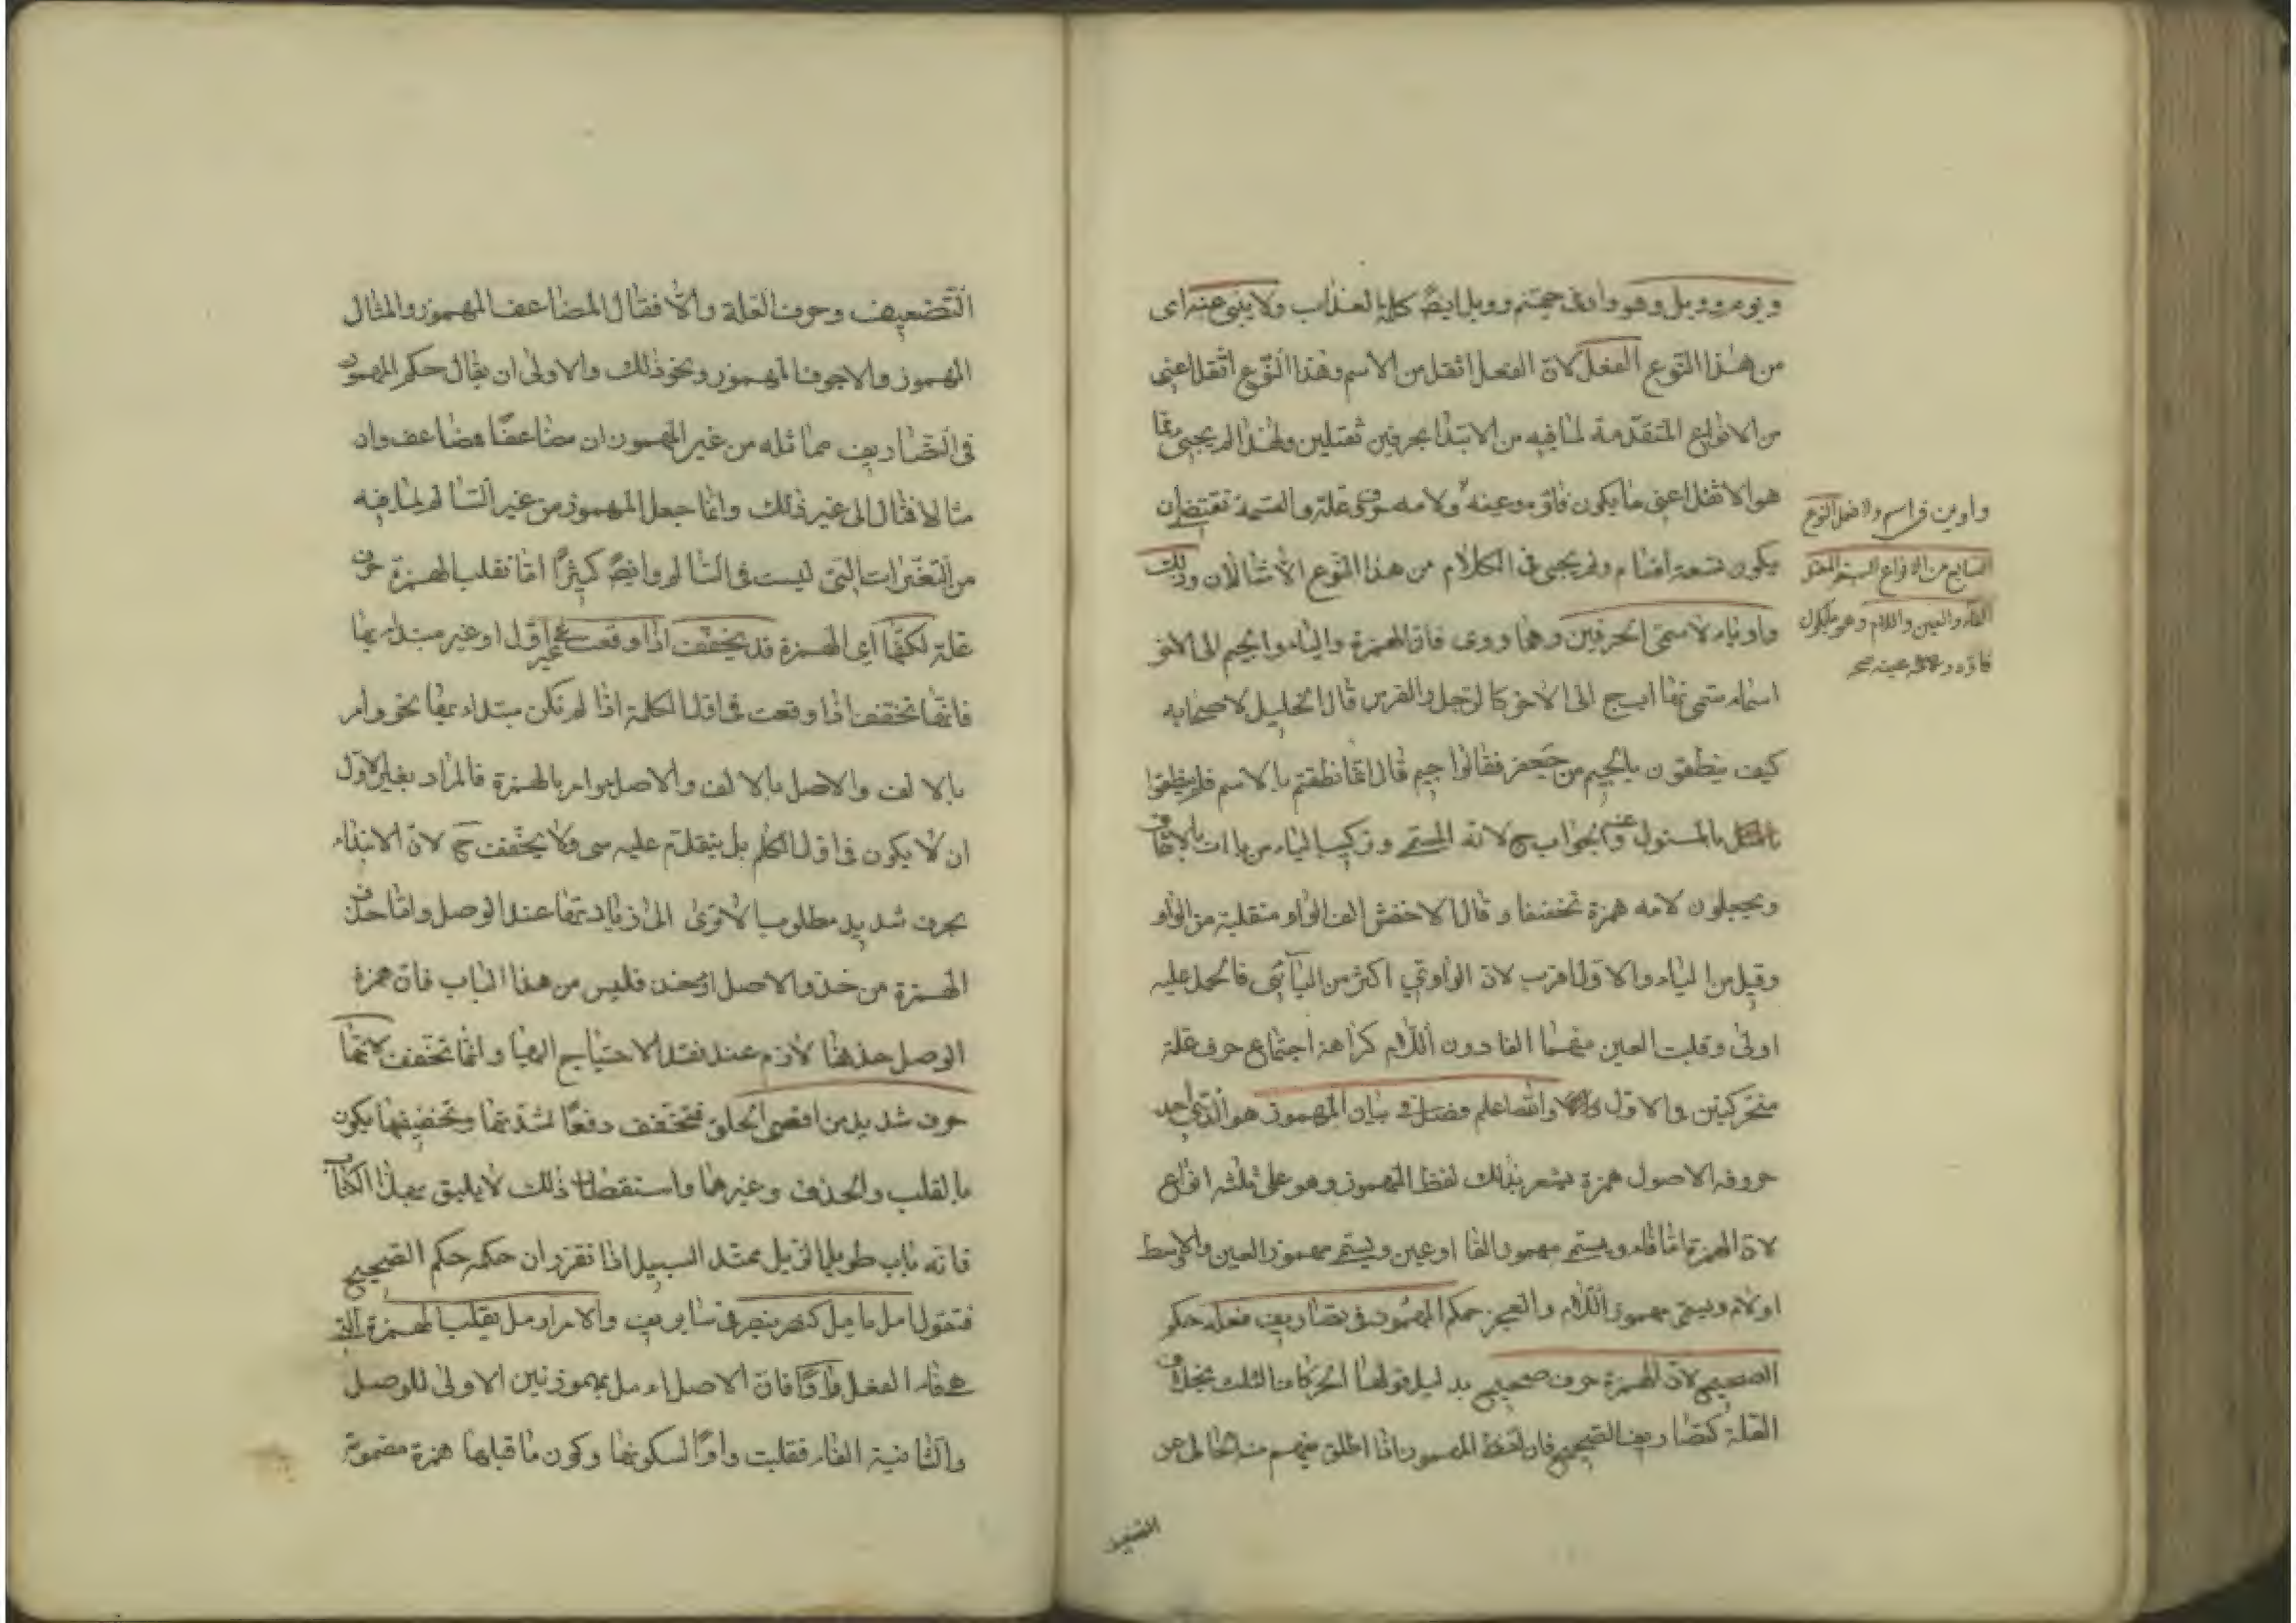 ويوم وويل وهو واد في جهنم وويل ايضً كلمة العذاب ولا يبنى عنه اى
من هذا النوع الفعل لان الفعل اثقل من الاسم وهذا النوع اثقل اعنى
من الانواع المتقدمة لما فيه من الابتدا بحرفين ثقيلين ولهذا لم يجئ مما
هو الاثقل اعنى ما يكون فاؤه وعينه ولامه حرف علة والقسمة تقتضى ان
يكون تسعة اقسام ولم يجئ فى الكلام من هذا النوع الا مثالان وذلك
واو وياء لاسمى الحرفين وهما ووى فان الهمزة والباء والجيم الى الاخر
اسماء مسمياتها اب ج الى الاخر كالرجل والفرس قال الخليل لاصحابه
كيف ينطقون بالجيم من جعفر فقالوا جيم قال انما نطقتم بالاسم فلم ينطقوا
بالمسئول عنه والجواب ج لانه المسمى وتركيب الياء من ياات بالاتفاق
ويجعلون لامه همزة تخفيفا وقال الاخفش الف الواو منقلبة من الواو
وقيل من الياء والاول اقرب لان الواوى اكثر من اليائى فالحمل عليه
اولى وقلبت العين منهما الفا دون اللام كراهة اجتماع حرف علة
متحركين والاول والله اعلم فصل فى بيان المهموز هو الذى احد
حروفه الاصول همزة يشعر بذلك لفظ المهموز وهو على ثلثة انواع
لان الهمزة اما فاء ويسمى مهموز الفا او عين ويسمى مهموز العين والاوسط
او لام ويسمى مهموز اللام والعجز حكم المهموز فى تصاريف فعله حكم
الصحيح لان الهمزة حرف صحيح بدليل قبولها الحركات الثلث بخلاف
العلة كتصاريف الصحيح فان لفظ المهموز اذا اطلق يفهم منه الخالى عن
التضعيف
واوين فى اسم ولا فعل النوع
السابع من الانواع السبعة المعتل
الفاء والعين واللام وهو ما يكون
فاؤه ولامه عينه صح
التضعيف وحروف العلة والا فقال المضاعف المهموز والمثال
المهموز والاجوف المهموز ونحو ذلك والاولى ان يقال حكم المهموز
فى التصاريف مماثله من غير المهموز ان مضاعفًا فمضاعف وان
مثالا فمثال الى غير ذلك وانما جعل المهموز من غير السالم لما فيه
من التغيرات التى ليست فى السالم وايضً كثيرًا اما تقلب الهمزة حرف
علة لكنها اى الهمزة قد يخفف اذا وقعت غير اول او غير مبتداء بها
فانها تخفف اذا وقعت فى اول الكلمة اذا لم تكن مبتداء بها نحو وامر
بالالف والاصل بالالف والاصل وامر بالهمزة فالمراد بغير الاول
ان لا يكون فى اول الكلم بل يتقدم عليه شى ولا يخفف ح لان الابتداء
بحرف شديد مطلوب الا ترى الى زيادتها عند الوصل واما حذف
الهمزة من خذ والاصل اؤخذ فليس من هذا الباب فان همزة
الوصل حذفها لازم عند فقد الاحتياج اليها وانما تخفف لانها
حرف شديد من اقصى الحلق فتخفف دفعًا لشدتها وتخفيفها يكون
بالقلب والحذف وغيرهما واستقصاء ذلك لا يليق بهذا الكتاب
فانه باب طويل الذيل ممتد السبيل اذا تقرر ان حكمه حكم الصحيح
فتقول امل يامل كنصر ينصر فى ساير يف والامر اومل بقلب الهمزة التى
هى فاء الفعل واوًا فان الاصل اءمل بهمزتين الاولى للوصل
والثانية الفاء فقلبت واوًا لسكونها وكون ما قبلها همزة مضمومة